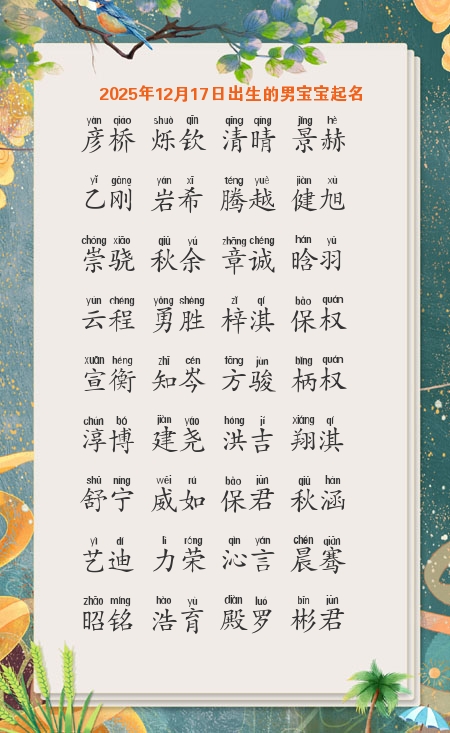 2025年12月17日出生的男宝宝起名
yàn qiáo shuò qīn qíng qíng jǐng hè
彦桥 烁钦 清晴 景赫
yǐ gāng yán xī téng yuè jiàn xù
乙刚 岩希 腾越 健旭
chóng xiāo qiū yú zhāng chéng hán yǔ
崇骁 秋余 章诚 晗羽
yún chéng yǒng shèng zǐ qí bǎo quán
云程 勇胜 梓淇 保权
xuān héng zhī cén fāng jùn bǐng quán
宣衡 知岑 方骏 柄权
chún bó jiàn yáo hóng jí xiáng qí
淳博 建尧 洪吉 翔淇
shū níng wēi rú bǎo jūn qiū hán
舒宁 威如 保君 秋涵
yì dí lì róng qìn yán chén qiān
艺迪 力荣 沁言 晨骞
zhāo míng hào yù diàn luó bīn jūn
昭铭 浩育 殿罗 彬君